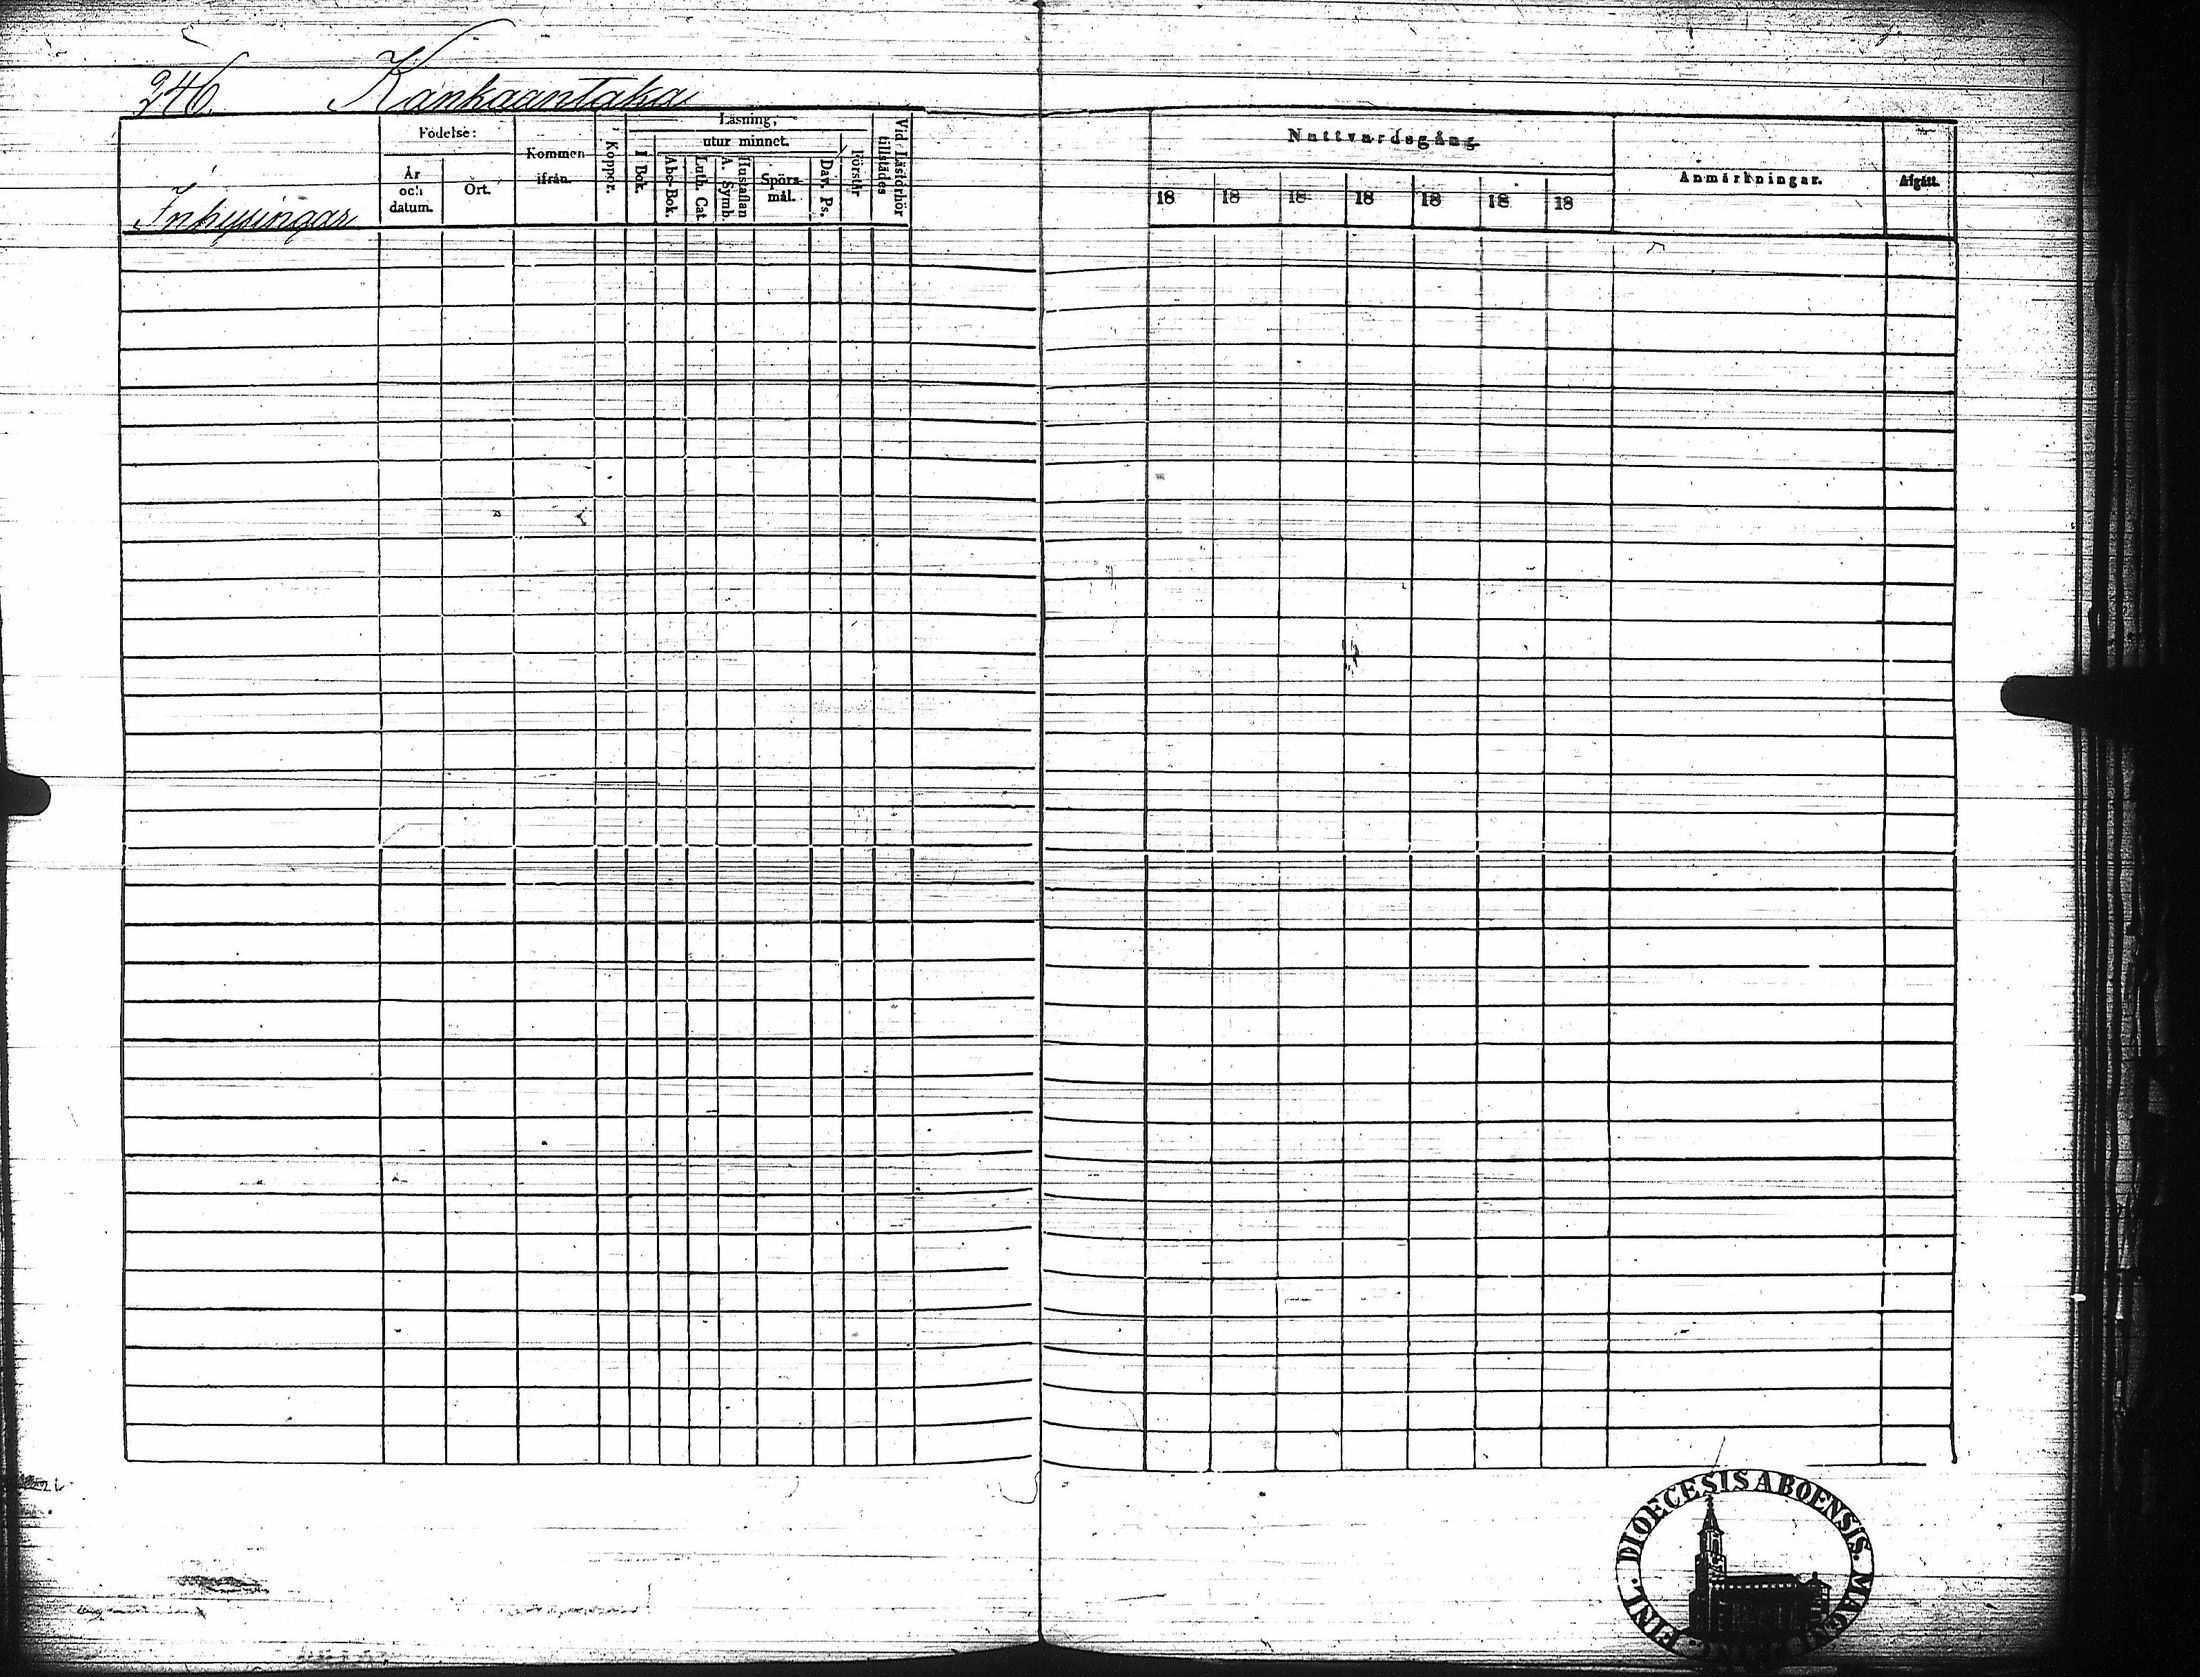 346. Kankaantaka
Inhysingar
Födelse:
År och datum.
Ort.
Kommen ifrån.
Koppor.
Läsning,
utur minnet.
I Bok.
Abc-Bok.
Luth. Cat.
Hustaflan A. Symb.
Spörsmål.
Dav. Ps.
Förstår
Vid Läsförhör tillstädes
Nattvardsgång
18 18 18 18 18 18 18
Anmärkningar.
Afgått.
FINL. DIOECESIS ABOENSIS. MAGN.